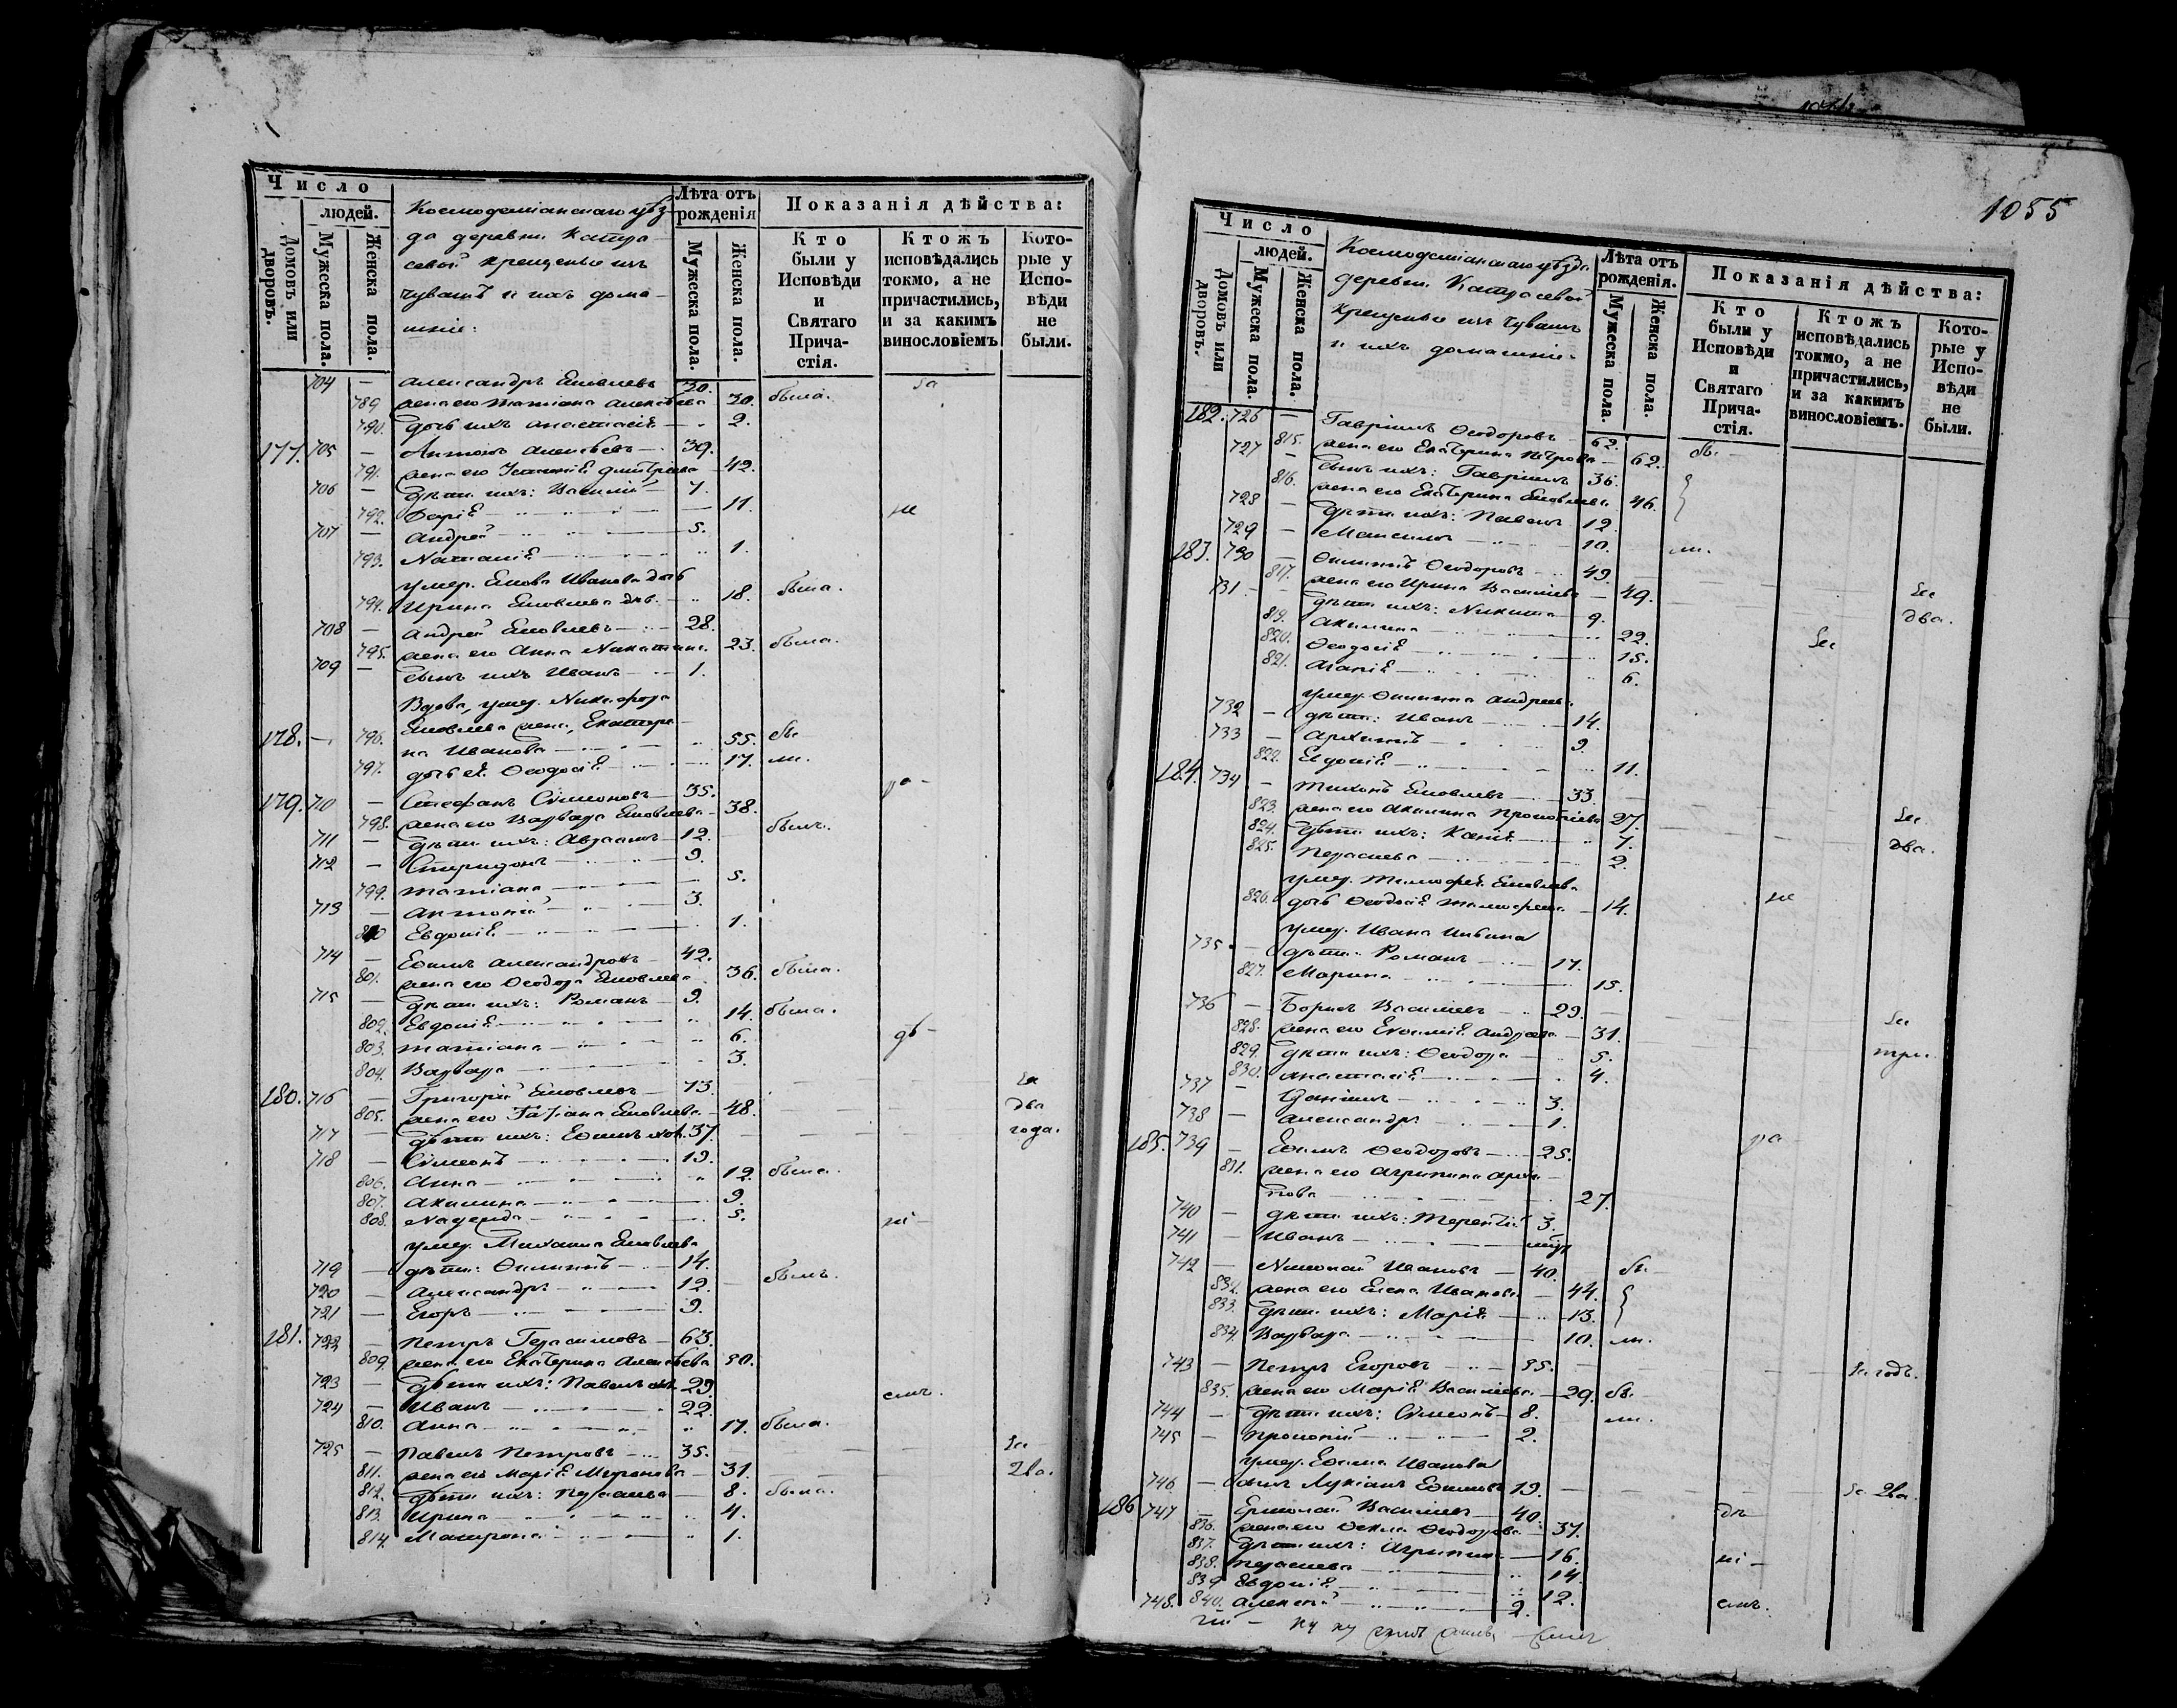 Число
людей.
Домовъ или дворовъ.
Мужеска пола.
Женска пола.
Козмодемianскаго уѣз-
да деревни Катра-
севой крещеные изъ
чувашъ и ихъ дома-
шніе:
Лѣта отъ рожденія
Мужеска пола.
Женска пола.
Показанія дѣйства:
Кто были у Исповѣди и Святаго Причастія.
Ктожъ исповѣдались токмо, а не причастились, и за какимъ винословіемъ
Которые у Исповѣди не были.
704 — Александръ Яковлевъ 30. за
789 жена его Татіана Алексѣева 30. была.
790. дочь ихъ Анастасія — 2.
177. 705 — Антонъ Алексѣевъ — 39.
791. жена его Дмитріева 42.
706 — дѣти ихъ: Василій — 7.
792. Дарія — 11. не
707 — Андрей — 5.
793. Наталія — 1.
умер. Якова Иванова дочь
794. Ирина Яковлева дѣв. — 18. была.
708 — Андрей Яковлевъ — 28.
795. жена его Анна 23. была.
709 — сынъ ихъ Иванъ — 1.
Вдова, умер. Никифора
Яковлева жена, Екатери-
178. — 796. на Иванова — 55. бы
797. дочь ея Ѳеодосія — 17. ли.
179. 710 — Стефанъ Сѵмеоновъ — 35. ра-
798. жена его Варвара Яковлева — 38.
711 — дѣти ихъ: Авраамъ — 12. былъ.
712 — Спиридонъ — 9.
799. Татіана — 5.
713 — Антоній — 3.
800 Евдокія — 1.
714 — Ефимъ Александровъ — 42.
801. жена его Ѳеодора Яковлева 36. была.
715 — дѣти ихъ: Романъ — 9.
802. Евдокія — 14. была.
803. Татіана — 6. дѣ-
804. Варвара — 3.
180. 716 — Григорій Яковлевъ — 73. за
805. жена его Татіана Яковлева — 48. два
717 — дѣти ихъ: Ефимъ 37. года.
718 — Сѵмеонъ — 19.
806. Анна — 12. была.
807. Акилина — 9.
808. Надежда — 5. ні-
умер. Михаила Яковлева
719 — дѣти: Филиппъ — 14.
720 — Александръ — 12. былъ.
721 — Егоръ — 9.
181. 722 — Петръ Герасимовъ — 63.
809. жена его Екатерина Алексѣева 50.
723 — дѣти ихъ: Павелъ 29. емъ.
724 — Иванъ — 22.
810. Анна — 17. была.
725 — Павелъ Петровъ — 35. за
811. жена его Марія Миронова — 31. два.
812. дѣти ихъ: Параскева — 8. была.
813. Ирина — 4.
814. Матрона — 1.
1055
Число
людей.
Домовъ или дворовъ.
Мужеска пола.
Женска пола.
Козмодемianскаго уѣзда
деревни Катрасевой
крещеные изъ чувашъ
и ихъ домашніе.
Лѣта отъ рожденія.
Мужеска пола.
Женска пола.
Показанія дѣйства:
Кто были у Исповѣди и Святаго Причастія.
Ктожъ исповѣдались токмо, а не причастились, и за какимъ винословіемъ.
Которые у Исповѣди не были.
182. 726 — Гавріилъ Ѳеодоровъ — 62.
815. жена его Екатерина Петрова — 62. бы-
727 — сынъ ихъ: Гавріилъ 36.
816. жена его Екатерина Яковлева 46.
728 — дѣти ихъ: Павелъ 12.
729 — Максимъ — 10. ли.
183. 730 — Филиппъ Ѳеодоровъ — 49.
817. жена его Ирина Васильева — 49. за
731 — дѣти ихъ: Никита — 9. два.
819. Акилина — 22.
820. Ѳеодосія — 15. за
821. Агапія — 6.
умер. Филиппа Андреева
732 — дѣти: Иванъ — 14.
733 — Архиппъ — 9.
822. Евдокія — 11.
184. 734 — Тихонъ Яковлевъ — 33.
823. жена его Акилина Прокопіева 27. за
824. дѣти ихъ: Ксенія — 7. два.
825. Параскева — 2.
умер. Тимофея Яковлева
826. дочь Ѳеодосія Тимофеева — 14. не
умер. Ивана
735. — дѣти: Романъ — 17.
827. Марина — 15.
736 — Борисъ Васильевъ — 29.
828. жена его Евфимія Андреева — 31. за
829. дѣти ихъ: Ѳеодора — 5. три.
830. Анастасія — 4.
737 — Даніилъ — 3.
738 — Александръ — 1.
185. 739 — Ефимъ Ѳеодоровъ — 25. ра-
831. жена его Агрипина Архи-
пова — 27.
740 — дѣти ихъ: Терентій 3.
741 — Иванъ —
742 — Николай Ивановъ — 40. бы-
832. жена его Елена Иванова — 44.
833. дѣти ихъ: Марія — 13.
834. Варвара — 10. ли.
743 — Петръ Егоровъ — 35. за годъ.
835. жена его Марія Васильева — 29. бы-
744 — дѣти ихъ: Сѵмеонъ — 8. ли.
745 — Прокопій — 2.
умер. Ефима Иванова
746 — сынъ Лукіанъ Ефимовъ 19. за два.
186 747 — Ермолай Васильевъ — 40. дѣ-
836. жена его Ѳекла Ѳеодорова — 37.
837. дѣти ихъ: Агрипина — 16. ні-
838. Параскева — 14.
839 Евдокія — 12.
748. 840. Алексѣй — 2. емъ.